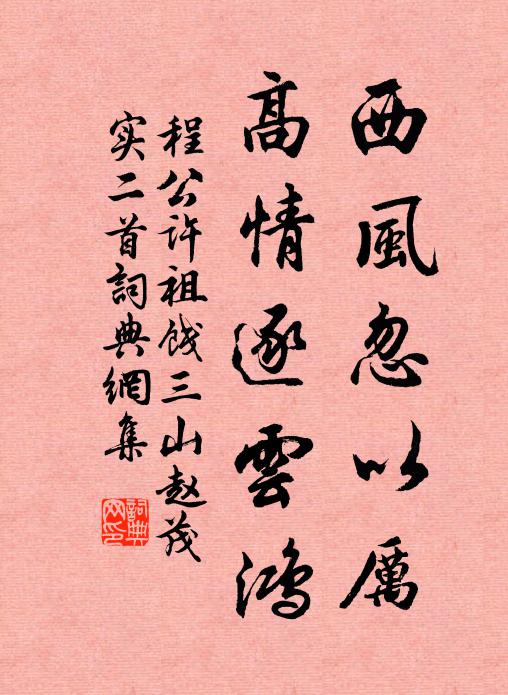 西風忽以厲
高情逐雲鴻
程公许祖饯三山赵茂
实二首詞典網集
詞典网印